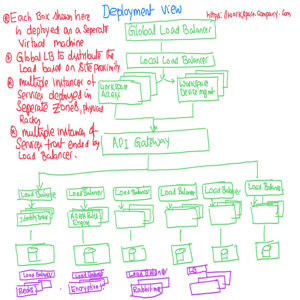 Deployment View
https://workspace.company.com
Each Box shown here
is deployed as a Seperate
Virtual machine
Global LB to distribute the
Load based on Site proximity
multiple instances of
Services deployed in
Seperate Zones, physical
Racks
multiple instance of
Services front ended by
Load Balancers.
Global Load Balancer
Local Load Balancer
Workspace
Access
Workspace
Device mgmt
API Gateway
Load Balancer
Load Balancer
Load Balancer
Load Balancer
Load Balancer
Load Balancer
Identity
Access
Engine
Load Balancer
Load Balancer
Load Balancer
LB
Redis
Encryption
RabbitMQ